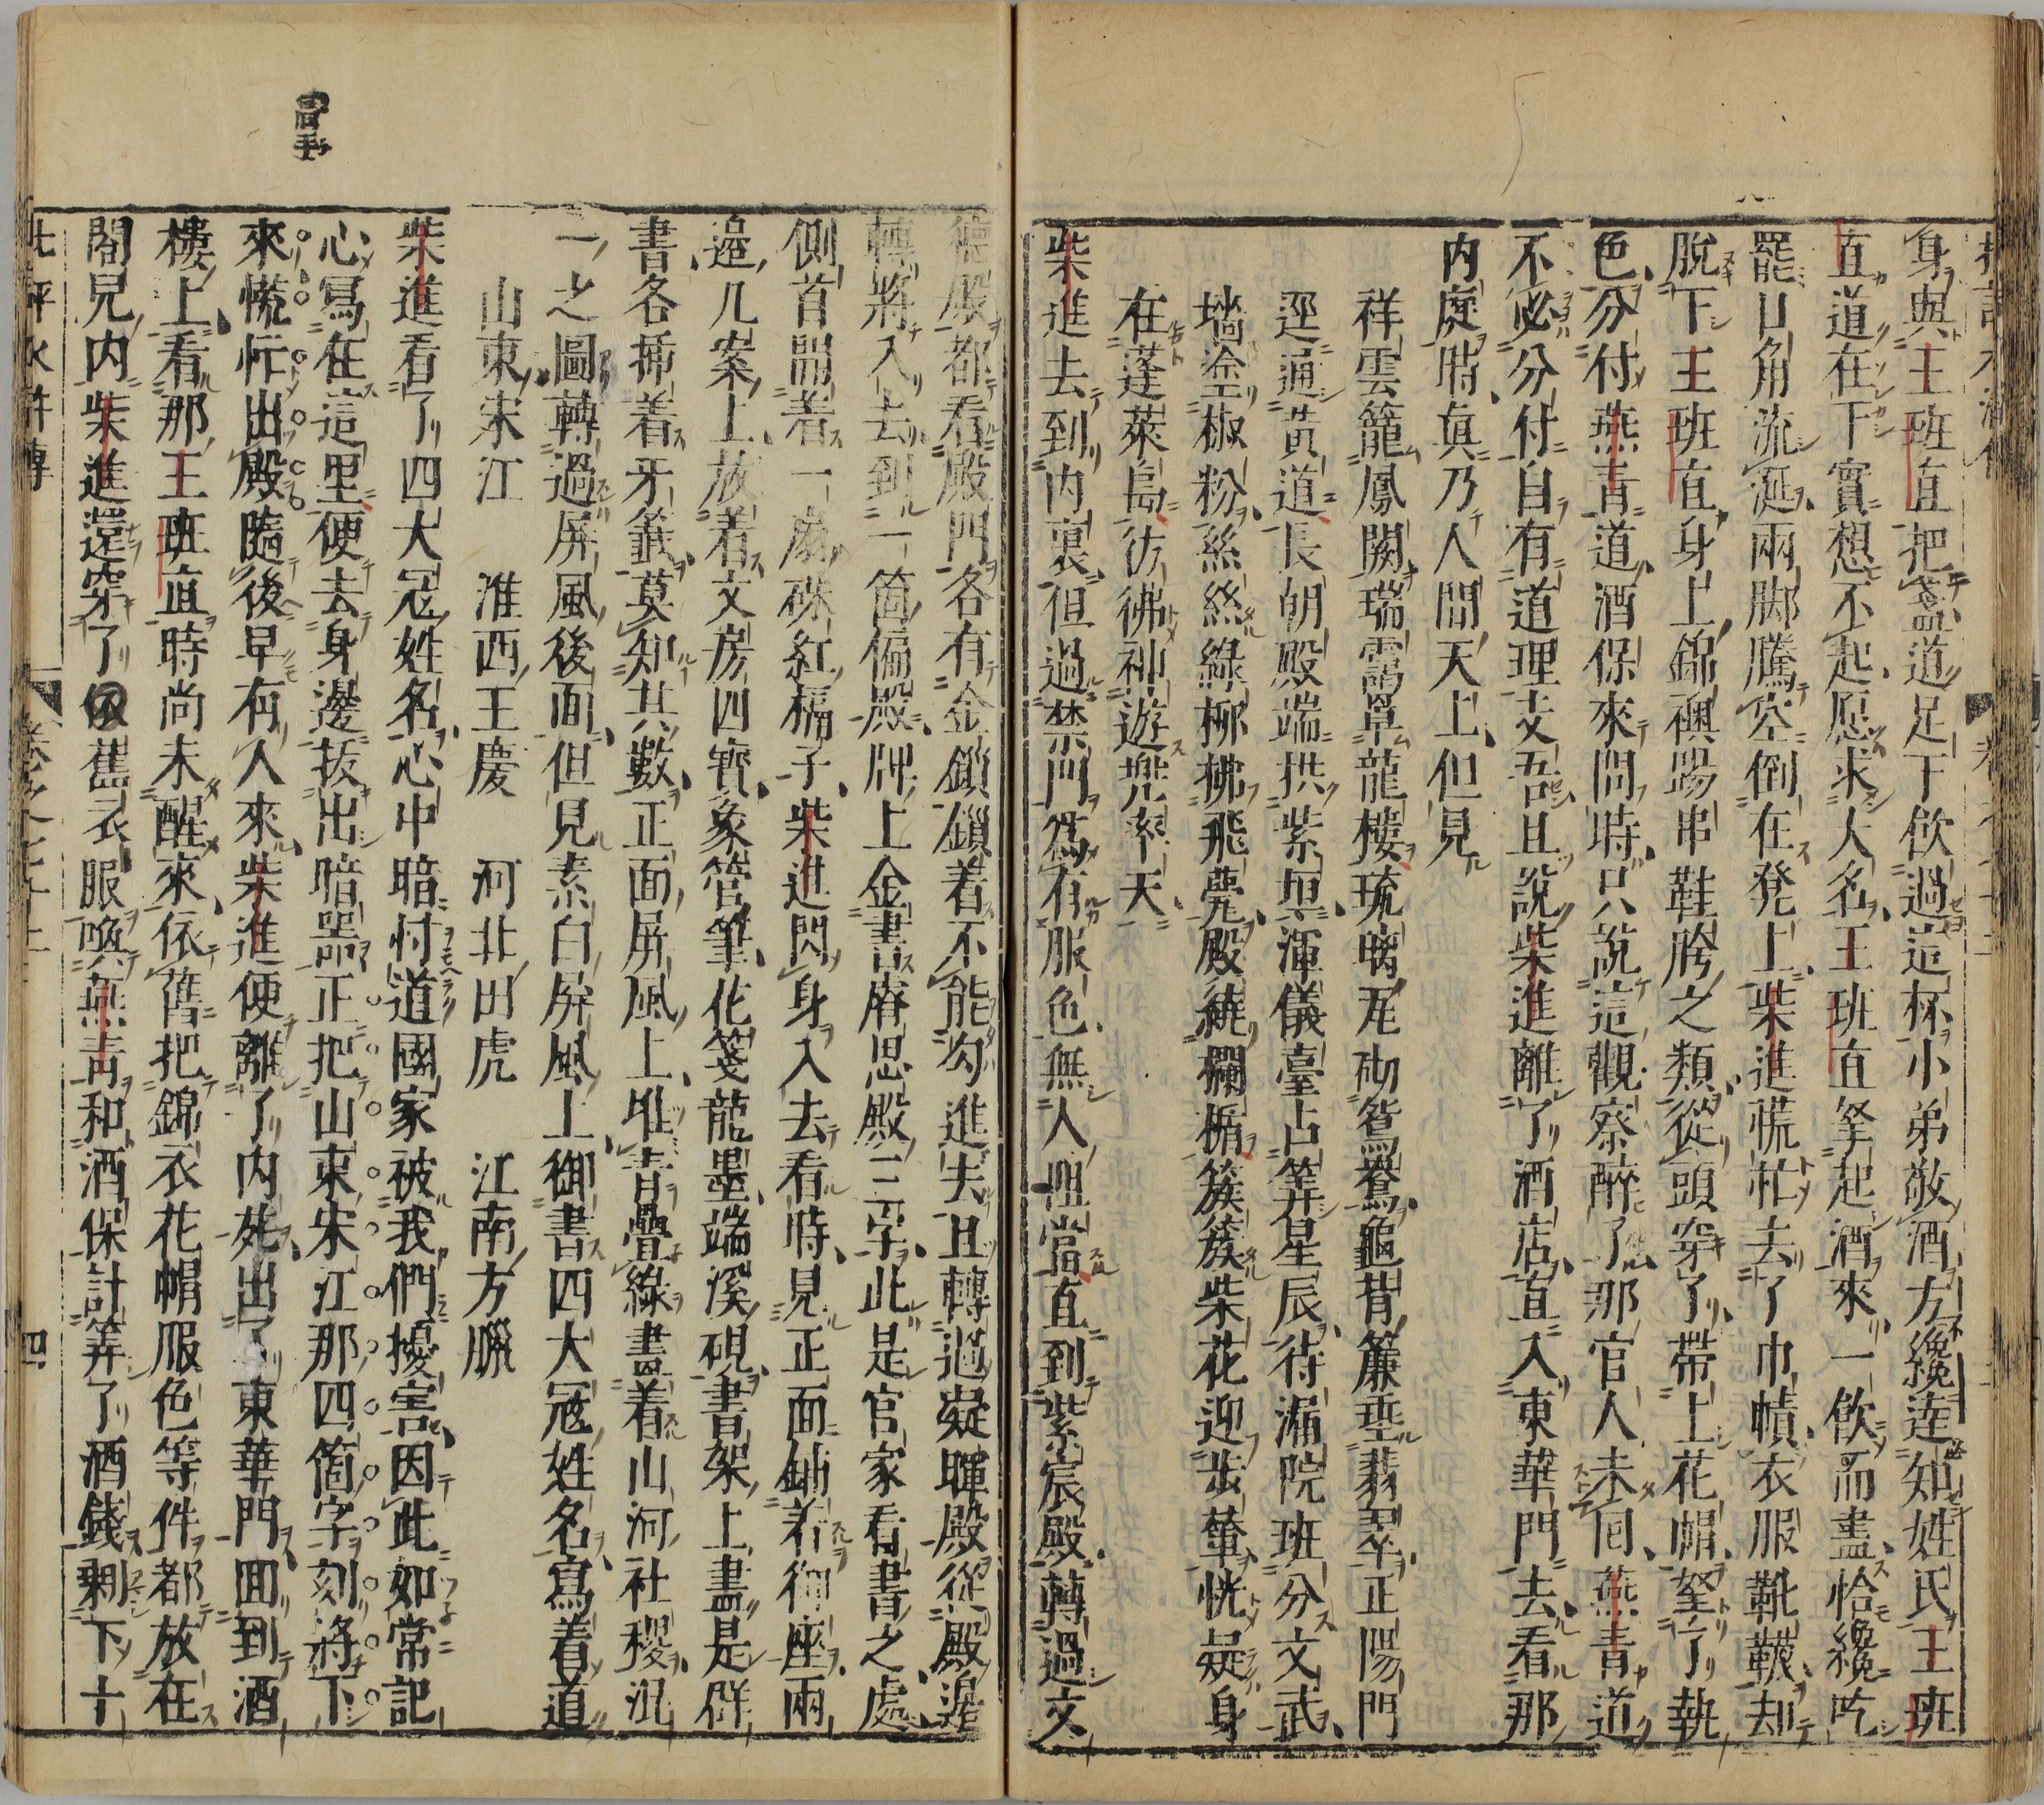 身與王班直把盞道足下飲過這杯小弟敬酒方纔達知姓氏王班
直道在下實想不起愿求大名王班直拏起酒來一飲而盡恰纔吃
罷口角流涎兩脚騰空倒在凳上柴進慌忙去了巾幘衣服靴韈却
脫下王班直身上錦襖踢串鞋胯之類從頭穿了帶上花帽拏了執
色分付燕青道酒保來問時只說這觀察醉了那官人未回燕青道
不必分付自有道理支吾且說柴進離了酒店直入東華門去看那
内庭時眞乃人間天上但見
祥雲籠鳳闕瑞靄罩龍樓琉璃瓦砌鴛鴦龜背簾垂翡翠正陽門
逕通黄道長朝殿端拱紫垣渾儀臺占筭星辰待漏院班分文武
墻塗椒粉絲絲綠柳拂飛甍殿繞欄楯簇簇柴花迎步輦恍疑身
在蓬萊島彷彿神遊兜率天
柴進去到内裏但過禁門爲有服色無人阻當直到紫宸殿轉過文
德殿都看殿門各有金鎖鎖着不能勾進去且轉過凝暉殿從殿邊
轉將入去到一箇偏殿牌上金書睿思殿三字此是官家看書之處
側首開着一扇硃紅槅子柴進閃身入去看時見正面鋪着御座兩
邊几案上放着文房四寶象管筆花箋龍墨端溪硯書架上盡是群
書各揷着牙籤莫知其數正面屏風上堆青疊綠畫着山河社稷混
一之圖轉過屏風後面但見素白屏風上御書四大冦姓名寫着道
山東宋江　淮西王慶　河北田虎　江南方臘
柴進看了四大冦姓名心中暗忖道國家被我們擾害因此如常記
心寫在這里便去身邊拔出暗器正把山東宋江那四箇字刻將下
來慌忙出殿隨後早有人來柴進便離了内苑出了東華門回到酒
樓上看那王班直時尚未醒來依舊把錦衣花帽服色等件都放在
閣兒内柴進還穿了依舊衣服喚燕青和酒保計筭了酒錢剩下十
四